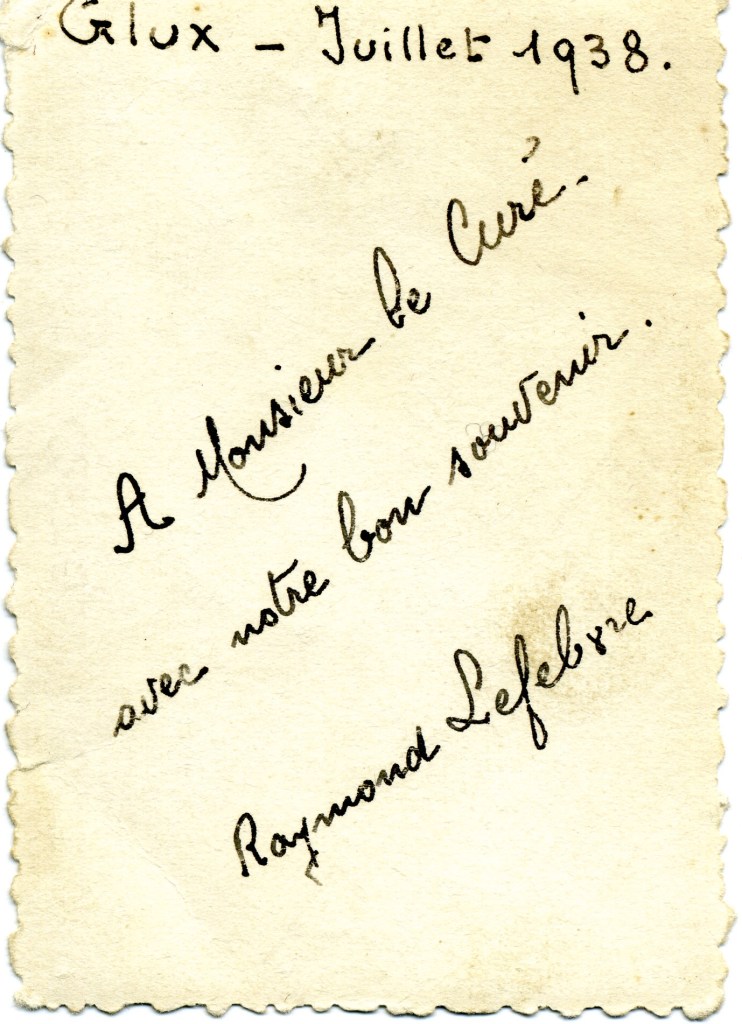 Glux - Juillet 1938.
A Monsieur le Curé.
avec notre bon souvenir.
Raymond Lefebvre